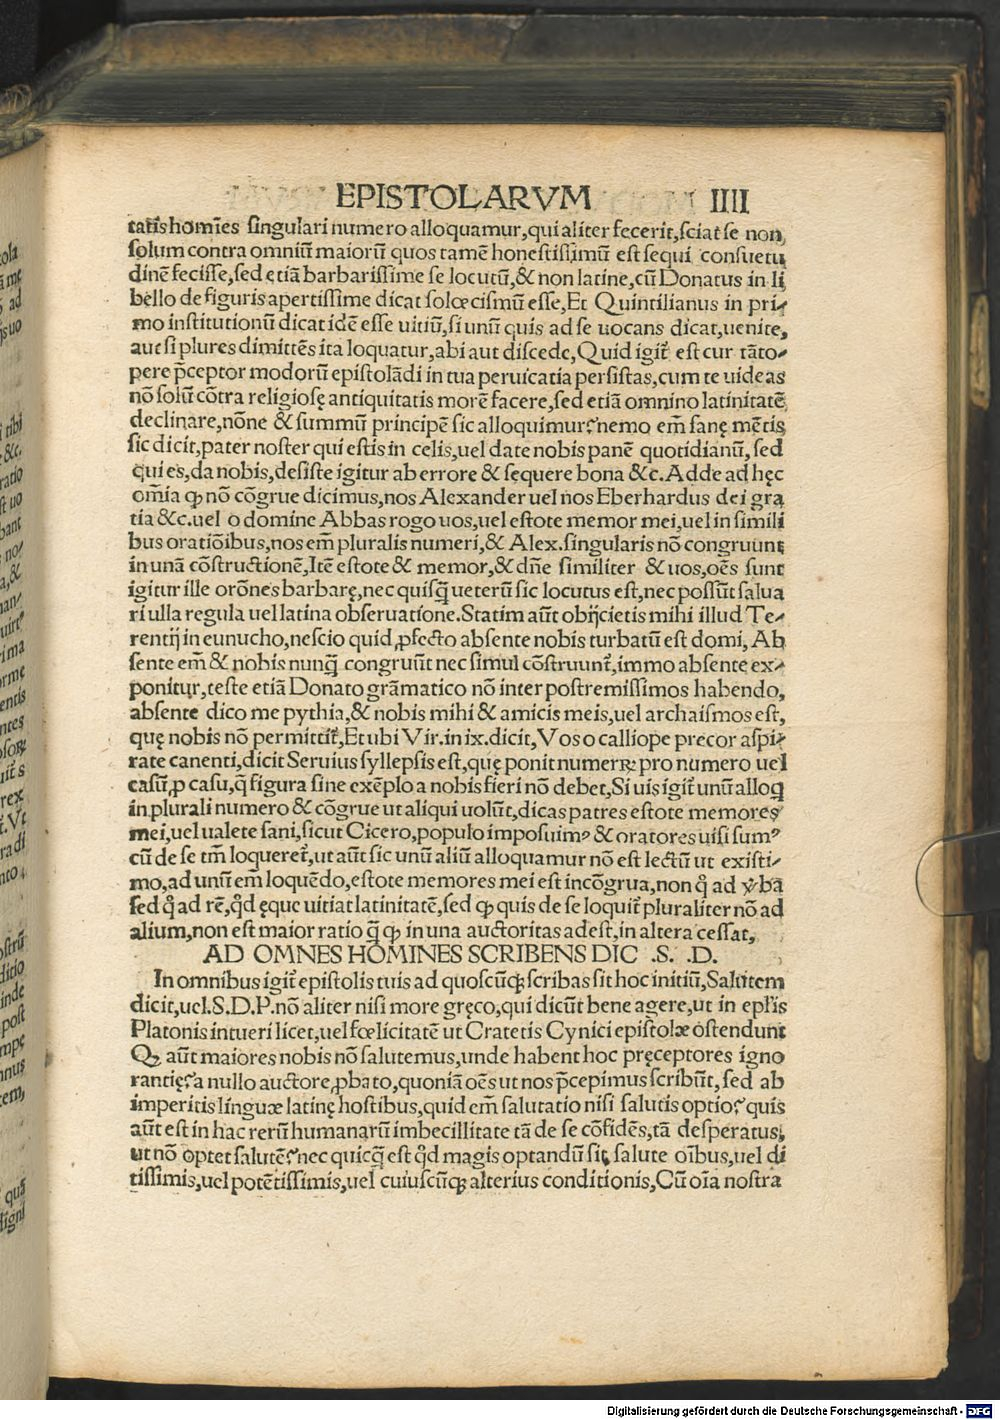 EPISTOLARVM IIII
tatis homĩes singulari numero alloquamur,qui aliter fecerit,sciat se non
solum contra omniũ maiorũ quos tamẽ honestissimũ est sequi consuetu
dinẽ fecisse,sed etiã barbarissime se locutũ,& non latine,cũ Donatus in li
bello de figuris apertissime dicat solœcismũ esse,Et Quintilianus in pri⸗
mo institutionũ dicat idẽ esse uitiũ,si unũ quis ad se uocans dicat,uenite,
aut si plures dimittẽs ita loquatur,abi aut discede,Quid igit̃ est cur tãto⸗
pere p̃ceptor modorũ epistolãdi in tua peruicatia persistas,cum te uideas
nõ solũ cõtra religiosę antiquitatis morẽ facere,sed etiã omnino latinitatẽ
declinare,nõne & summũ principẽ sic alloquimur?nemo em̃ sanę mẽtis
sic dicit,pater noster qui estis in celis,uel date nobis panẽ quotidianũ, sed
qui es,da nobis,desiste igitur ab errore & sequere bona &c.Adde ad hęc
om̃ia ꝙ nõ cõgrue dicimus,nos Alexander uel nos Eberhardus dei gra
tia &c.uel o domine Abbas rogo uos,uel estote memor mei,uel in simili
bus oratiõibus,nos em̃ pluralis numeri,& Alex.singularis nõ congruunt
in unã cõstructionẽ,Itẽ estote & memor,& dñe similiter & uos,oẽs sunt
igitur ille orõnes barbarę,nec quisq̃ ueterũ sic locutus est,nec possũt salua
ri ulla regula uel latina obseruatione.Statim aũt obijcietis mihi illud Te⸗
rentij in eunucho,nescio quid ,ꝓfecto absente nobis turbatũ est domi, Ab
sente em̃ & nobis nunq̃ congruũt nec simul cõstruunt̃,immo absente ex⸗
ponitur,teste etiã Donato grãmatico nõ inter postremissimos habendo,
absente dico me pythia,& nobis mihi & amicis meis,uel archaismos est,
quę nobis nõ permittit̃,Et ubi Vir.in ix.dicit,Vos o calliope precor aspi⸗
rate canenti,dicit Seruius syllepsis est,quę ponit numeꝝ pro numero uel
casũ ꝓ casu,q̃ figura sine exẽplo a nobis fieri nõ debet,Si uis igit̃ unũ alloq
in plurali numero & cõgrue ut aliqui uolũt,dicas patres estote memores
mei,uel ualete sani,sicut Cicero,populo imposuimꝰ & oratores uisi sumꝰ
cũ de se tm̃ loqueret̃,ut aũt sic unũ aliũ alloquamur nõ est lectũ ut existi⸗
mo,ad unũ em̃ loquẽdo,estote memores mei est incõgrua,non q̊ ad v̾ba
sed q̊ ad rẽ,q̊d ęque uitiat latinitatẽ,sed ꝙ quis de se loquit̃ pluraliter nõ ad
alium,non est maior ratio q̃ ꝙ in una auctoritas adest,in altera cessat,
AD OMNES HOMINES SCRIBENS DIC .S. .D.
In omnibus igit̃ epistolis tuis ad quoscũqꝫ scribas sit hoc initiũ,Salutem
dicit,uel.S.D.P.nõ aliter nisi more gręco,qui dicũt bene agere,ut in epl̃is
Platonis intueri licet,uel fœlicitatẽ ut Cratetis Cynici epistolæ ostendunt
Qꝫ aũt maiores nobis nõ salutemus,unde habent hoc pręceptores igno
rantię?a nullo auctore ꝓbato,quoniã oẽs ut nos p̃cepimus scribũt, sed ab
imperitis linguæ latinę hostibus,quid em̃ salutatio nisi salutis optio?quis
aũt est in hac rerũ humanarũ imbecillitate tã de se cõfidẽs,tã desperatus,
ut nõ optet salutẽ?nec quicq̃ est q̊d magis optandũ sit, salute oĩbus,uel di
tissimis,uel potẽtissimis,uel cuiuscũqꝫ alterius conditionis,Cũ oĩa nostra
Digitalisierung gefördert durch die Deutsche Forschungsgemeinschaft - DFG